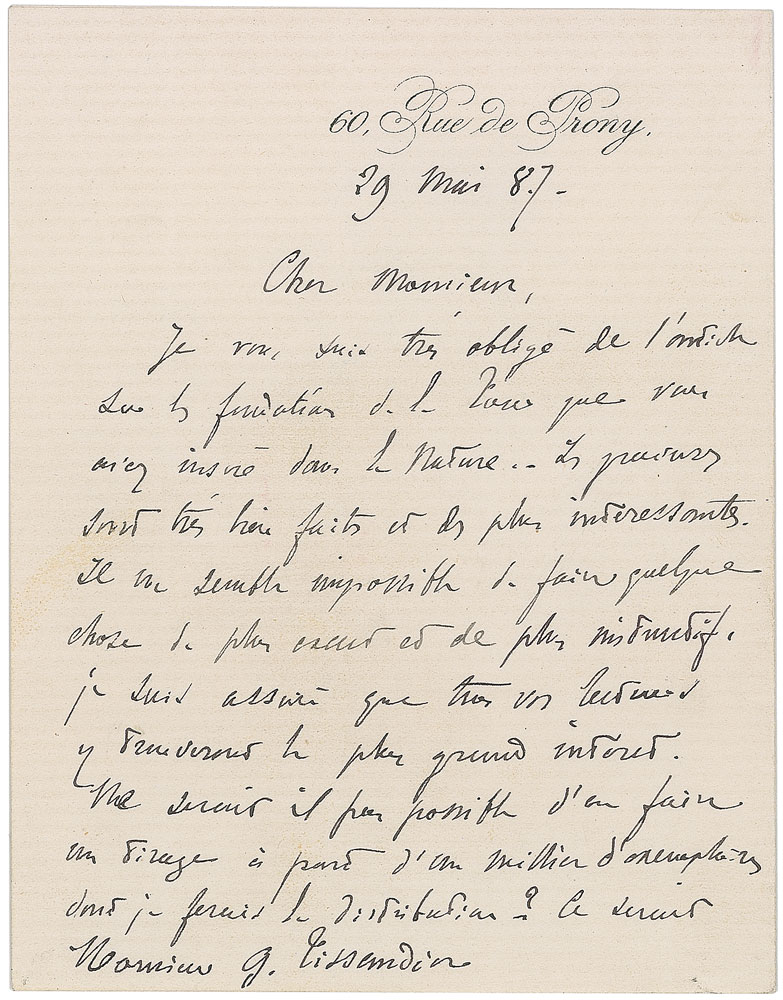 60, Rue de Prony.
29 Mai 87 -
Cher Monsieur,
Je vous suis très obligé de l'article
sur les fondations de la Tour que vous
avez inséré dans la Nature.. Les gravures
sont très bien faites et des plus intéressantes.
Il me semble impossible de faire quelque
chose de plus exact et de plus instructif.
je suis assuré que tous vos lecteurs
y trouveront le plus grand intéret.
Ne serait il pas possible d'en faire
un tirage à part d'un millier d'exemplaires
dont je ferais la distribution ? Ce serait
Monsieur G. Tissandier